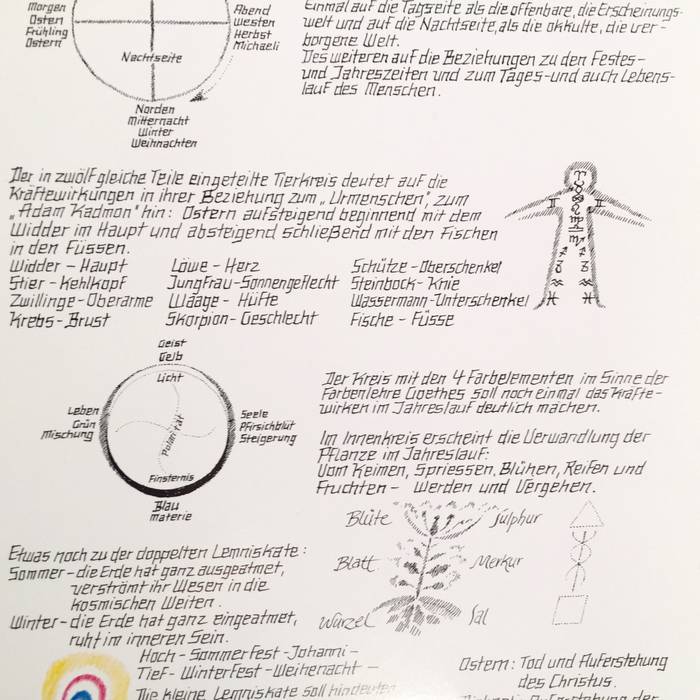 Morgen
Osten
Frühling
Ostern
Nachtseite
Abend
Westen
Herbst
Michaeli
Norden
Mitternacht
Winter
Weihnachten
Einmal auf die Tagseite als die offenbare, die Erscheinungs-
welt und auf die Nachtseite, als die okkulte, die ver-
borgene Welt.
Des weiteren auf die Beziehungen zu den Festes-
und Jahreszeiten und zum Tages- und auch Lebens-
lauf des Menschen.
Der in zwölf gleiche Teile eingeteilte Tierkreis deutet auf die
Kräftewirkungen in ihrer Beziehung zum „Urmenschen", zum
„Adam Kadmon" hin: Ostern aufsteigend beginnend mit dem
Widder im Haupt und absteigend schließend mit den Fischen
in den Füssen.
Widder - Haupt
Stier - Kehlkopf
Zwillinge - Oberarme
Krebs - Brust
Löwe - Herz
Jungfrau - Sonnengeflecht
Waage - Hüfte
Skorpion - Geschlecht
Schütze - Oberschenkel
Steinbock - Knie
Wassermann - Unterschenkel
Fische - Füsse
Geist
Gelb
Licht
Leben
Grün
Mischung
Polarität
Seele
Pfirsichblüt
Steigerung
Finsternis
Blau
Materie
Der Kreis mit den 4 Farbelementen im Sinne der
Farbenlehre Goethes soll noch einmal das Kräfte-
wirken im Jahreslauf deutlich machen.
Im Innenkreis erscheint die Verwandlung der
Pflanze im Jahreslauf:
Vom Keimen, Spriessen, Blühen, Reifen und
Fruchten - Werden und Vergehen.
Blüte
Sulphur
Blatt
Merkur
Wurzel
Sal
Etwas noch zu der doppelten Lemniskate:
Sommer - die Erde hat ganz ausgeatmet,
verströmt ihr Wesen in die
kosmischen Weiten.
Winter - die Erde hat ganz eingeatmet,
ruht im inneren Sein.
Hoch - Sommerfest - Johanni -
Tief - Winterfest - Weihenacht -
Die kleine Lemniskate soll hindeuten
Ostern: Tod und Auferstehung
des Christus.